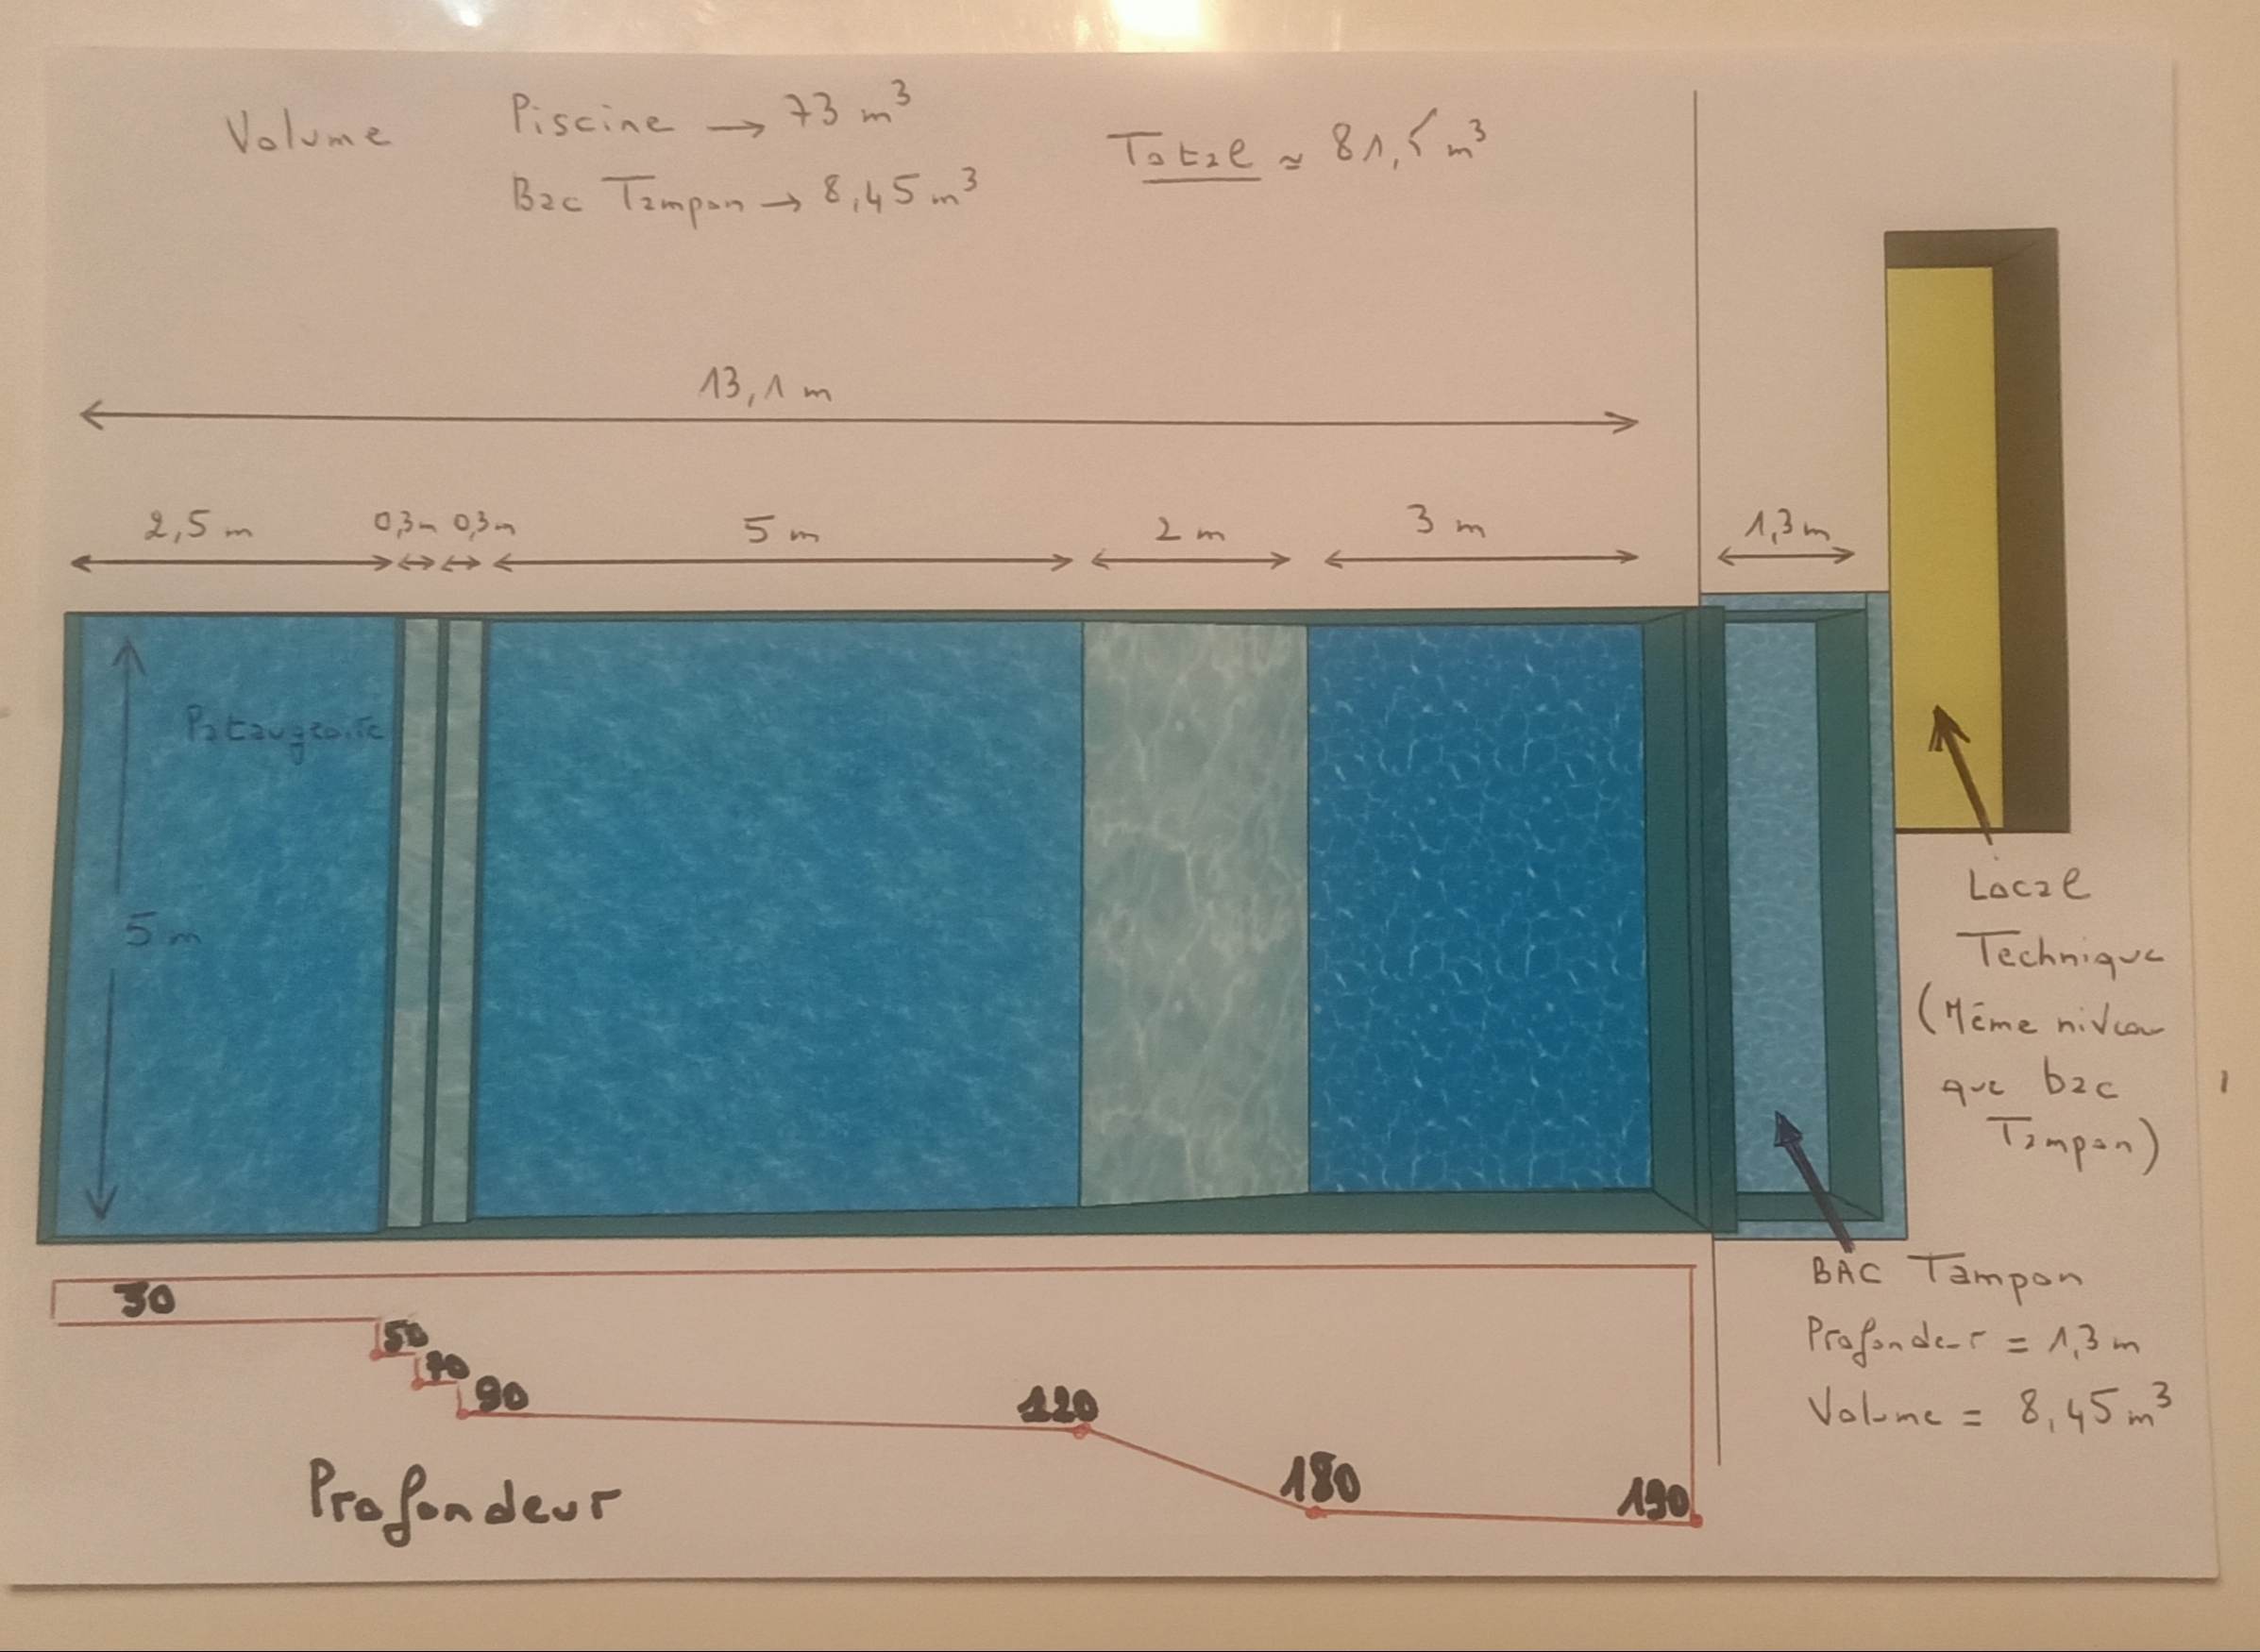 Volume
Piscine → 73 m³
Bac Tampon → 8,45 m³
Totale ≃ 81,5 m³
13,1 m
2,5 m
0,3m
0,3m
5 m
2 m
3 m
1,3m
Pataugeoire
5 m
Local
Technique
(Même niveau
que bac
Tampon)
BAC Tampon
Profondeur = 1,3 m
Volume = 8,45 m³
30
50
70
90
120
180
190
Profondeur